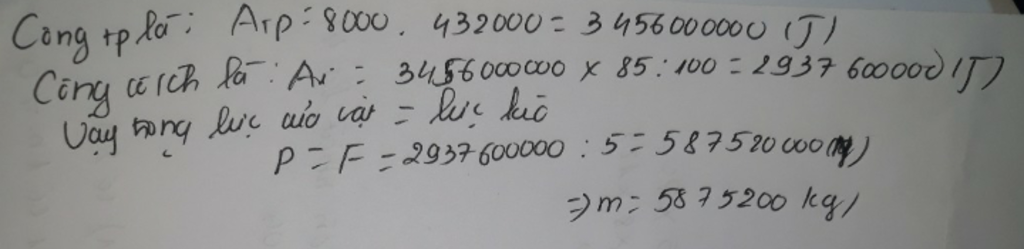 Công tp là: Atp = 8000 . 432000 = 3456000000 (J)
Công có ích là: Ai = 3456000000 x 85 : 100 = 2937600000 (J)
Vậy trọng lực của vật = lực kéo
P = F = 2937600000 : 5 = 587520000 (N)
=> m = 5875200 kg)